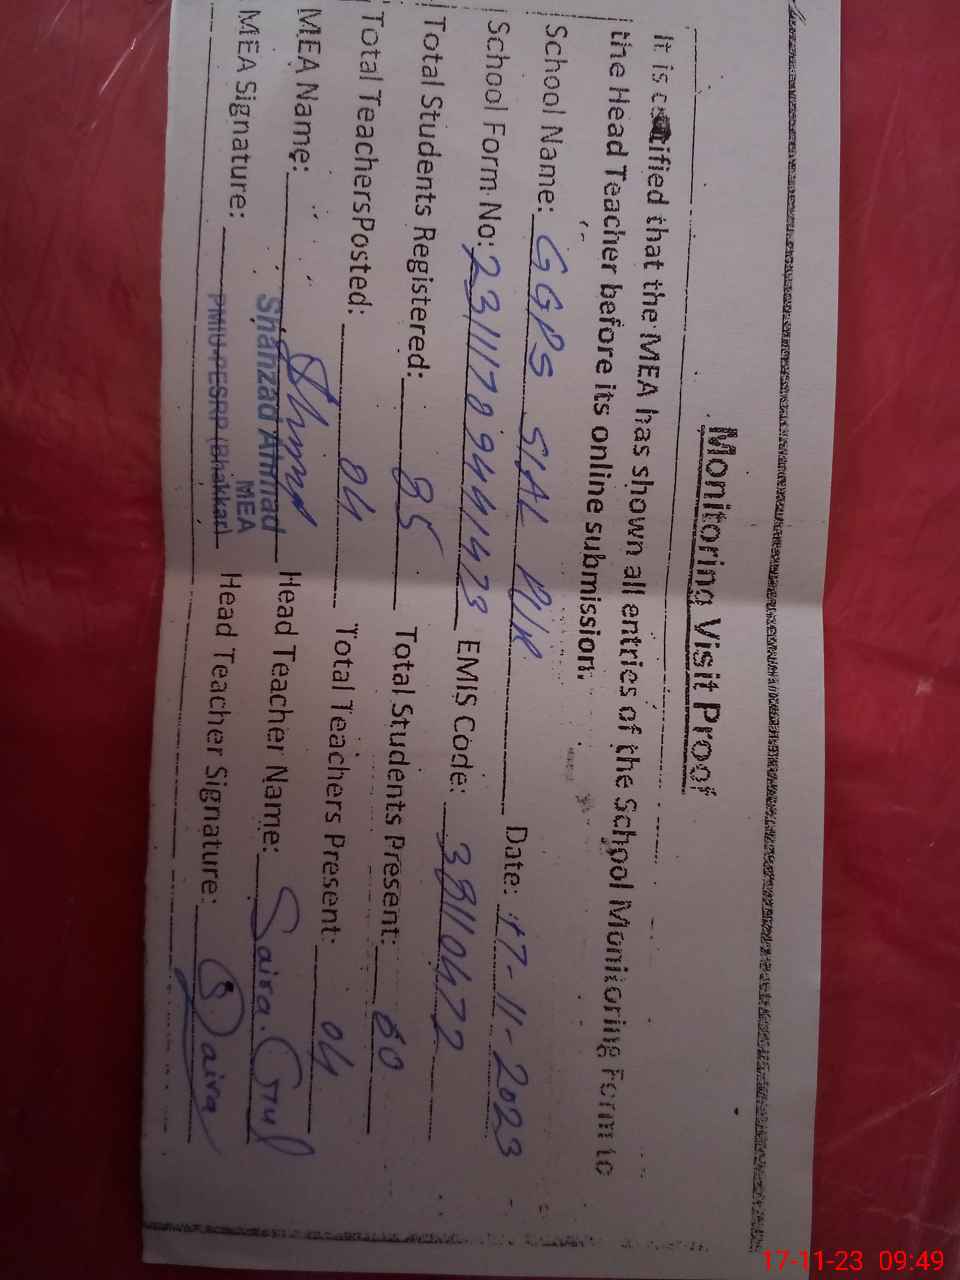 Monitoring Visit Proof
It is certified that the MEA has shown all entries of the School Monitoring Form to
the Head Teacher before its online submission.
School Name: GGPS SIAL Date: 17-11-2023
School Form No: EMIS Code: 38110472
Total Students Registered: 85 Total Students Present: 80
Total TeachersPosted: 04 Total Teachers Present: 04
MEA Name: Shahzad Ahmad Head Teacher Name: Saira Gul
MEA
MEA Signature: PMIU-PESRP (Bhakkar) Head Teacher Signature: Saira
17-11-23 09:49